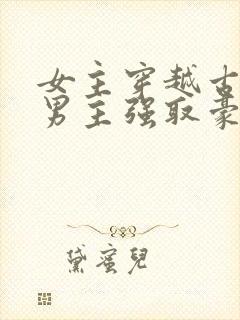 女主穿越古
男主强取豪
黛蜜儿